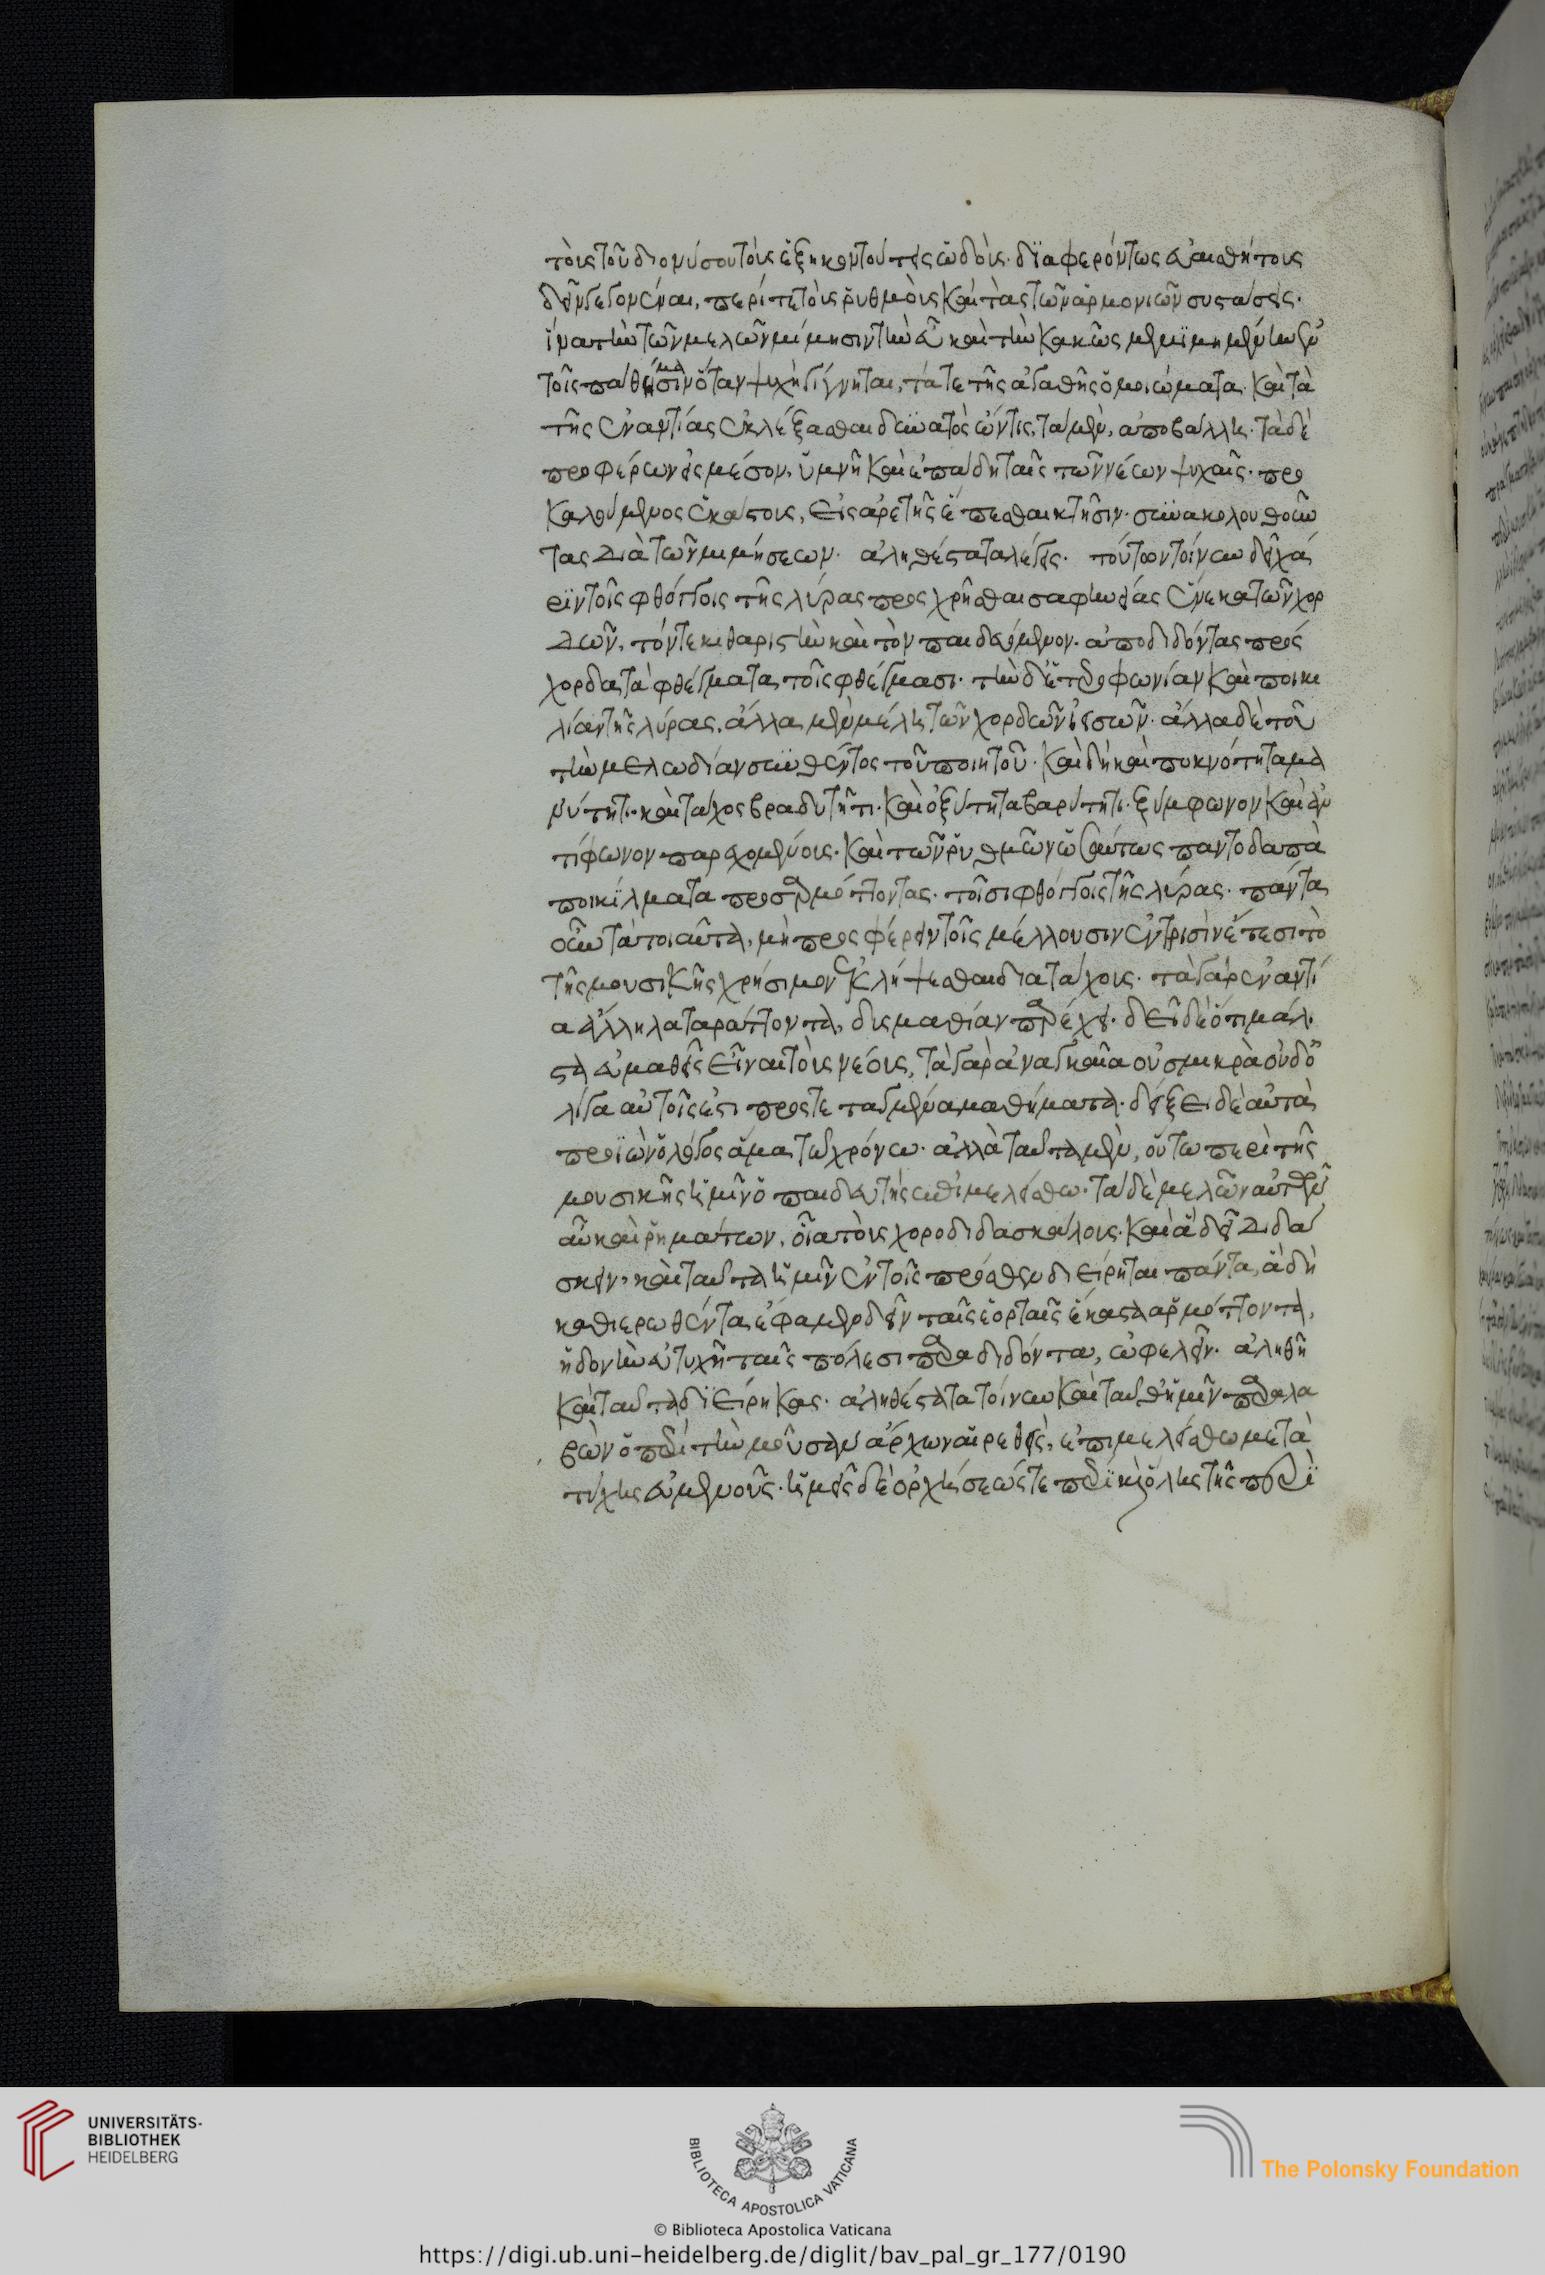 τοὺς τοῦ διονύσου τοὺς ἑξηκοντούτας ὠδοὺς· διαφερόντως εὐαισθήτους
δεῖν γεγονέναι, περί τε τοὺς ῥυθμοὺς καὶ τὰς τῶν ἁρμονιῶν συστάσεις·
ἵνα τὴν τῶν μελῶν μίμησιν τὴν εὖ καὶ τὴν κακῶς μεμϊμημένην ἐν
τοῖς παθήμασιν ὅταν ψυχὴ γίγνηται, τά τε τῆς ἀγαθῆς ὁμοιώματα· καὶ τὰ
τῆς ἐναντίας ἐκλέξασθαι δυνατὸς ὤν τις, τὰ μὲν, ἀποβάλλῃ· τὰ δὲ
προφέρων εἰς μέσον, ὑμνῇ καὶ ἐπάδῃ ταῖς τῶν νέων ψυχαῖς· προ
καλούμενος ἑκάστους, εἰς ἀρετῆς ἕπεσθαι κτῆσιν· συνακολουθοῦν
τας διὰ τῶν μιμήσεων· ἀληθέστατα λέγεις· τούτων τοίνυν δεῖ χά
ρϊν τοῖς φθόγγοις τῆς λύρας προσχρῆσθαι σαφηνείας ἕνεκα τῶν χορ
δῶν, τόν τε κιθαριστὴν καὶ τὸν παιδευόμενον· ἀποδιδόντας πρόσ
χορδα τὰ φθέγματα τοῖς φθέγμασι· τὴν δ' ἑτεροφωνίαν καὶ ποικι
λίαν τῆς λύρας, ἄλλα μὲν μέλη τῶν χορδῶν ἱεισῶν· ἄλλα δὲ τοῦ
τὴν μελωδίαν συνθέντος τοῦ ποιητοῦ· καὶ δὴ καὶ πυκνότητα μα
νότητι· καὶ τάχος βραδυτῆτι· καὶ ὀξύτητα βαρύτητι· ξύμφωνον καὶ ἀν
τίφωνον παρεχομένους· καὶ τῶν ῥυθμῶν ὡσαύτως παντοδαπὰ
ποικίλματα προσαρμόττοντας· τοῖσι φθόγγοις τῆς λύρας· πάντα
οὖν τὰ τοιαῦτα, μὴ προσφέρειν τοῖς μέλλουσιν ἐν τρισὶν ἔτεσι τὸ
τῆς μουσικῆς χρήσιμον ἐκλήψεσθαι διὰ τάχους· τὰ γὰρ ἐναντί
α ἄλληλα ταράττοντα, δυσμαθίαν παρέχει· δεῖ δὲ ὅτι μάλι
στα εὐμαθεῖς εἶναι τοὺς νέους, τὰ γὰρ ἀναγκαῖα οὐ σμικρὰ οὐδ' ὀ
λίγα αὐτοῖς ἐστι προστεταγμένα μαθήματα· δείξει δὲ αὐτὰ
προϊὼν ὁ λόγος ἅμα τῶ χρόνω· ἀλλὰ ταῦτα μὲν, οὕτω περὶ τῆς
μουσικῆς ἡμῖν ὁ παιδευτὴς ἐπιμελείσθω· τὰ δὲ μελῶν αὐτῶν
αὖ καὶ ῥημάτων, οἷα τοὺς χοροδιδασκάλους· καὶ ἃ δεῖ διδά
σκειν, καὶ ταῦτα ἡμῖν ἐν τοῖς πρόσθεν διείρηται πάντα, ἃ δὴ
καθιερωθέντα ἔφαμεν δεῖν ταῖς ἑορταῖς ἕκαστα ἁρμόττοντα,
ἡδονὴν εὐτυχῆ ταῖς πόλεσι παραδιδόντα, ὠφελεῖν· ἀληθῆ
καὶ ταῦτα διείρηκας· ἀληθέστατα τοίνυν καὶ ταῦθ' ἡμῖν παραλα
βὼν ὁ περὶ τὴν μοῦσαν ἄρχων αἱρεθεὶς, ἐπιμελείσθω μετὰ
τύχης εὐμενοῦς· ἡμεῖς δὲ ὀρχήσεώς τε περὶ καὶ ὅλης τῆς περὶ
UNIVERSITÄTS-
BIBLIOTHEK
HEIDELBERG
BIBLIOTECA APOSTOLICA VATICANA
The Polonsky Foundation
© Biblioteca Apostolica Vaticana
https://digi.ub.uni-heidelberg.de/diglit/bav_pal_gr_177/0190